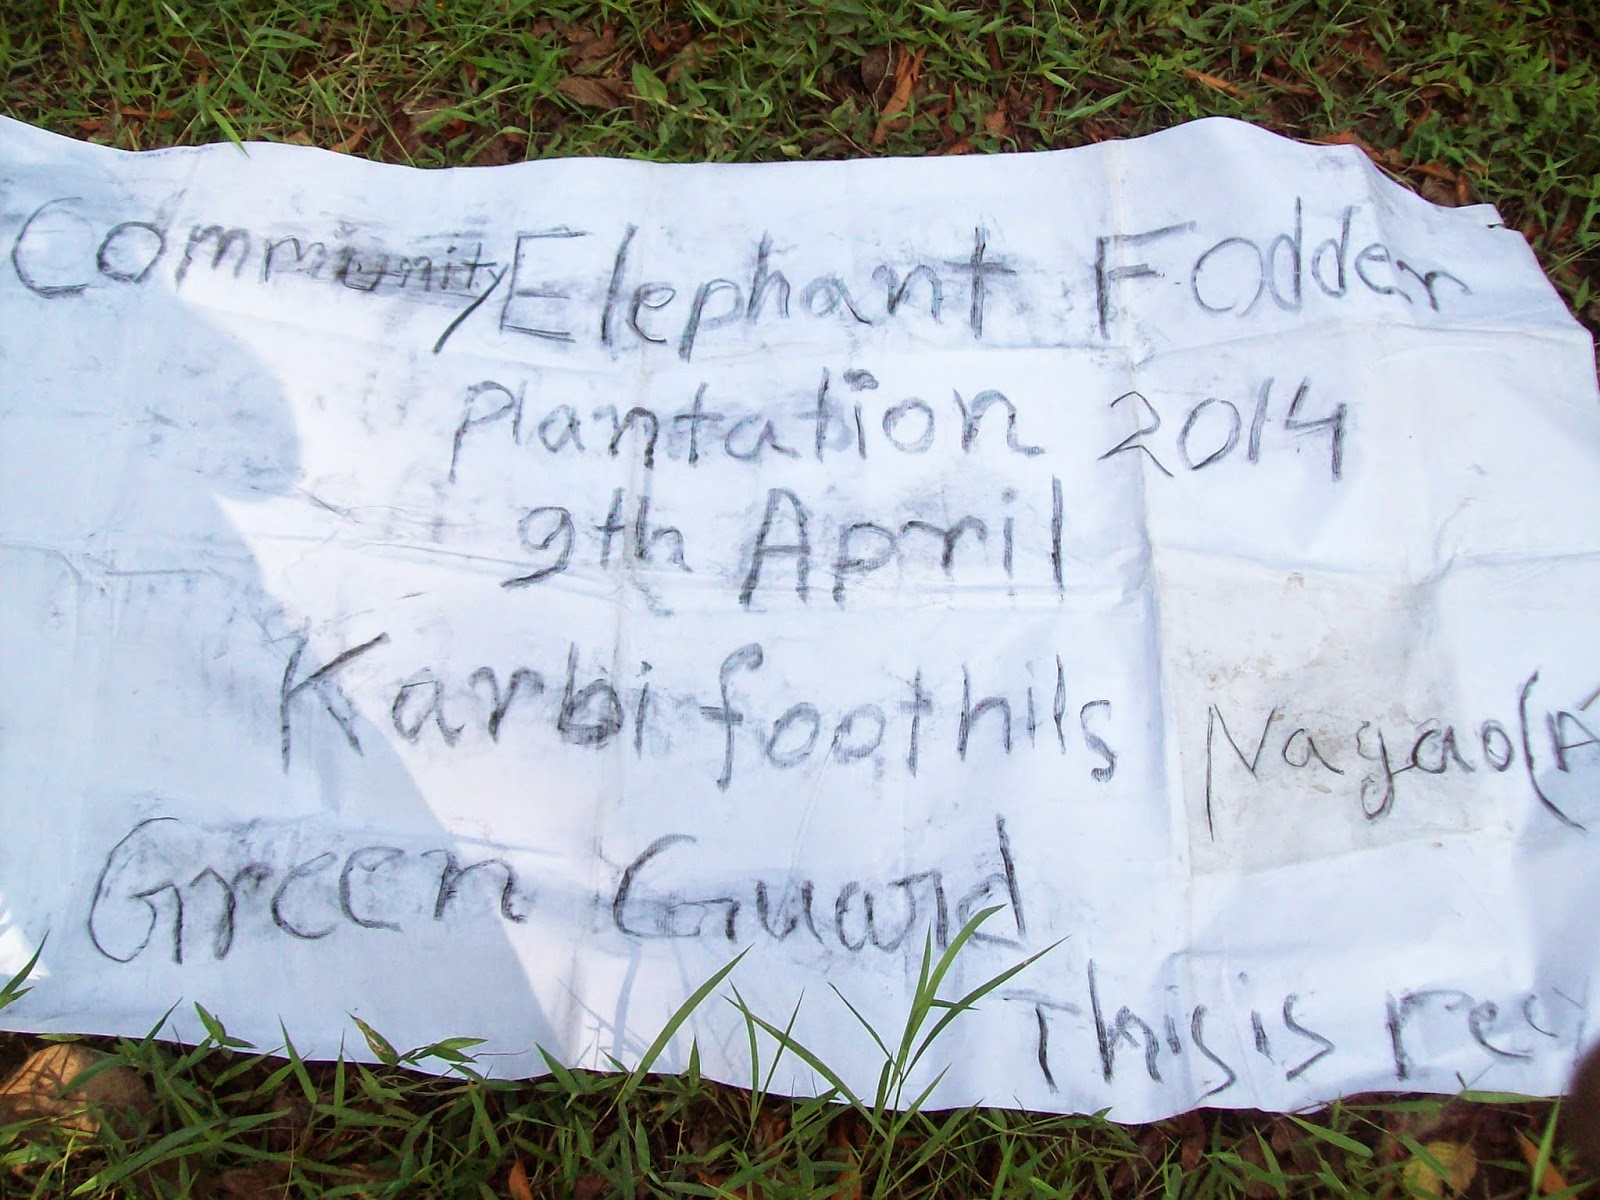 Community Elephant Fodder
Plantation 2014
9th April
Karbi foothils Nagao(A
Green Guard
This is recy